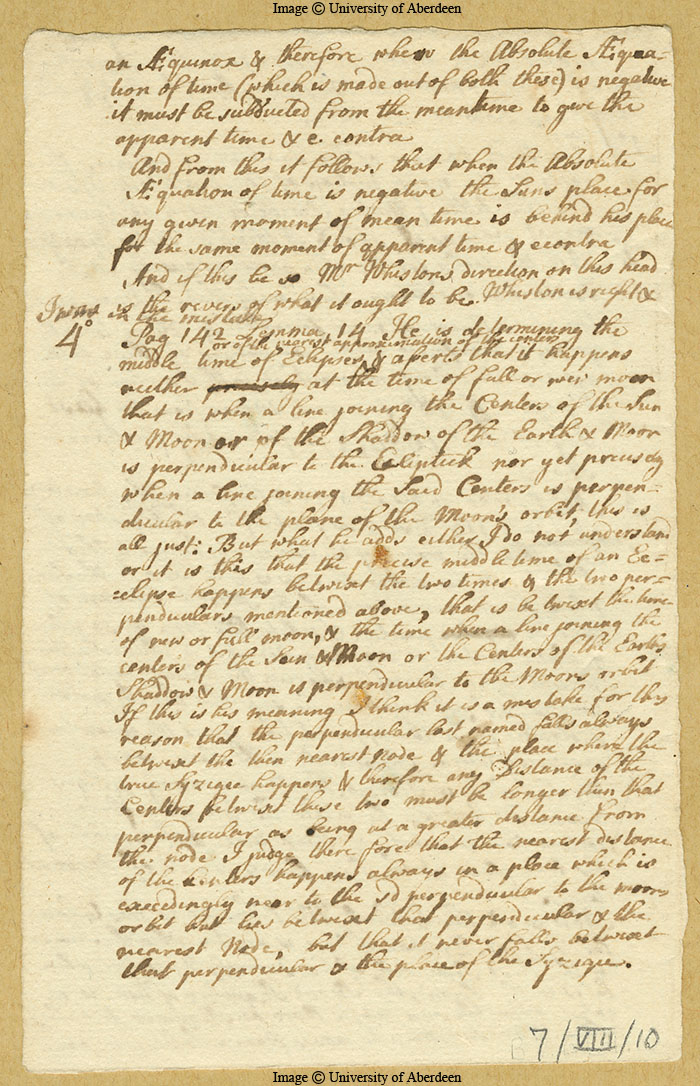 Image © University of Aberdeen
an Æquinox & therefore when the Absolute Æqua-
tion of time (which is made out of both these) is negative
it must be subducted from the meantime to give the
apparent time & e. contra
And from this it follows that when the Absolute
Æquation of time is negative the Suns place for
any given moment of mean time is behind his place
for the same moment of apparent time & econtra
And if this be so Mr Whistons direction on this head
is the revers of what it ought to be. Whiston is right &
I was in the mistake
4° Pag 142 Lemma 14 He is determining the
or of the nearest approximation of the centers
middle time of Eclipses, & aperts that it happens
neither precisely at the time of full or new moon
that is when a line joining the Centers of the Sun
& Moon or of the Shaddow of the Earth & Moon
is perpendicular to the Ecliptick nor yet precisely
when a line joining the Said Centers is perpen-
dicular to the plane of the Moon's orbit, this is
all just: But what he adds either I do not understand
or it is this that the precise middle time of an Ec-
-clipse happens betwixt the two times & the two per-
pendiculars mentioned above, that is betwixt the time
of new or full moon, & the time when a line joining the
centers of the Sun & Moon or the Centers of the Earths
Shaddow & Moon is perpendicular to the Moons orbit
If this is his meaning I think it is a mistake for this
reason that the perpendicular last named falls always
betwixt the then nearest Node & the place where the
true Syzigie happens & therefore any Distance of the
Centers betwixt these two must be longer then that
perpendicular as being at a greater distance from
the node I judge therefore that the nearest distance
of the Centers happens always in a place which is
exceedingly near to the sd perpendicular to the moons
orbit but lies betwixt that perpendicular & the
nearest Node, but that it never falls betwixt
that perpendicular & the place of the Syzigie.
7/VIII/10
Image © University of Aberdeen